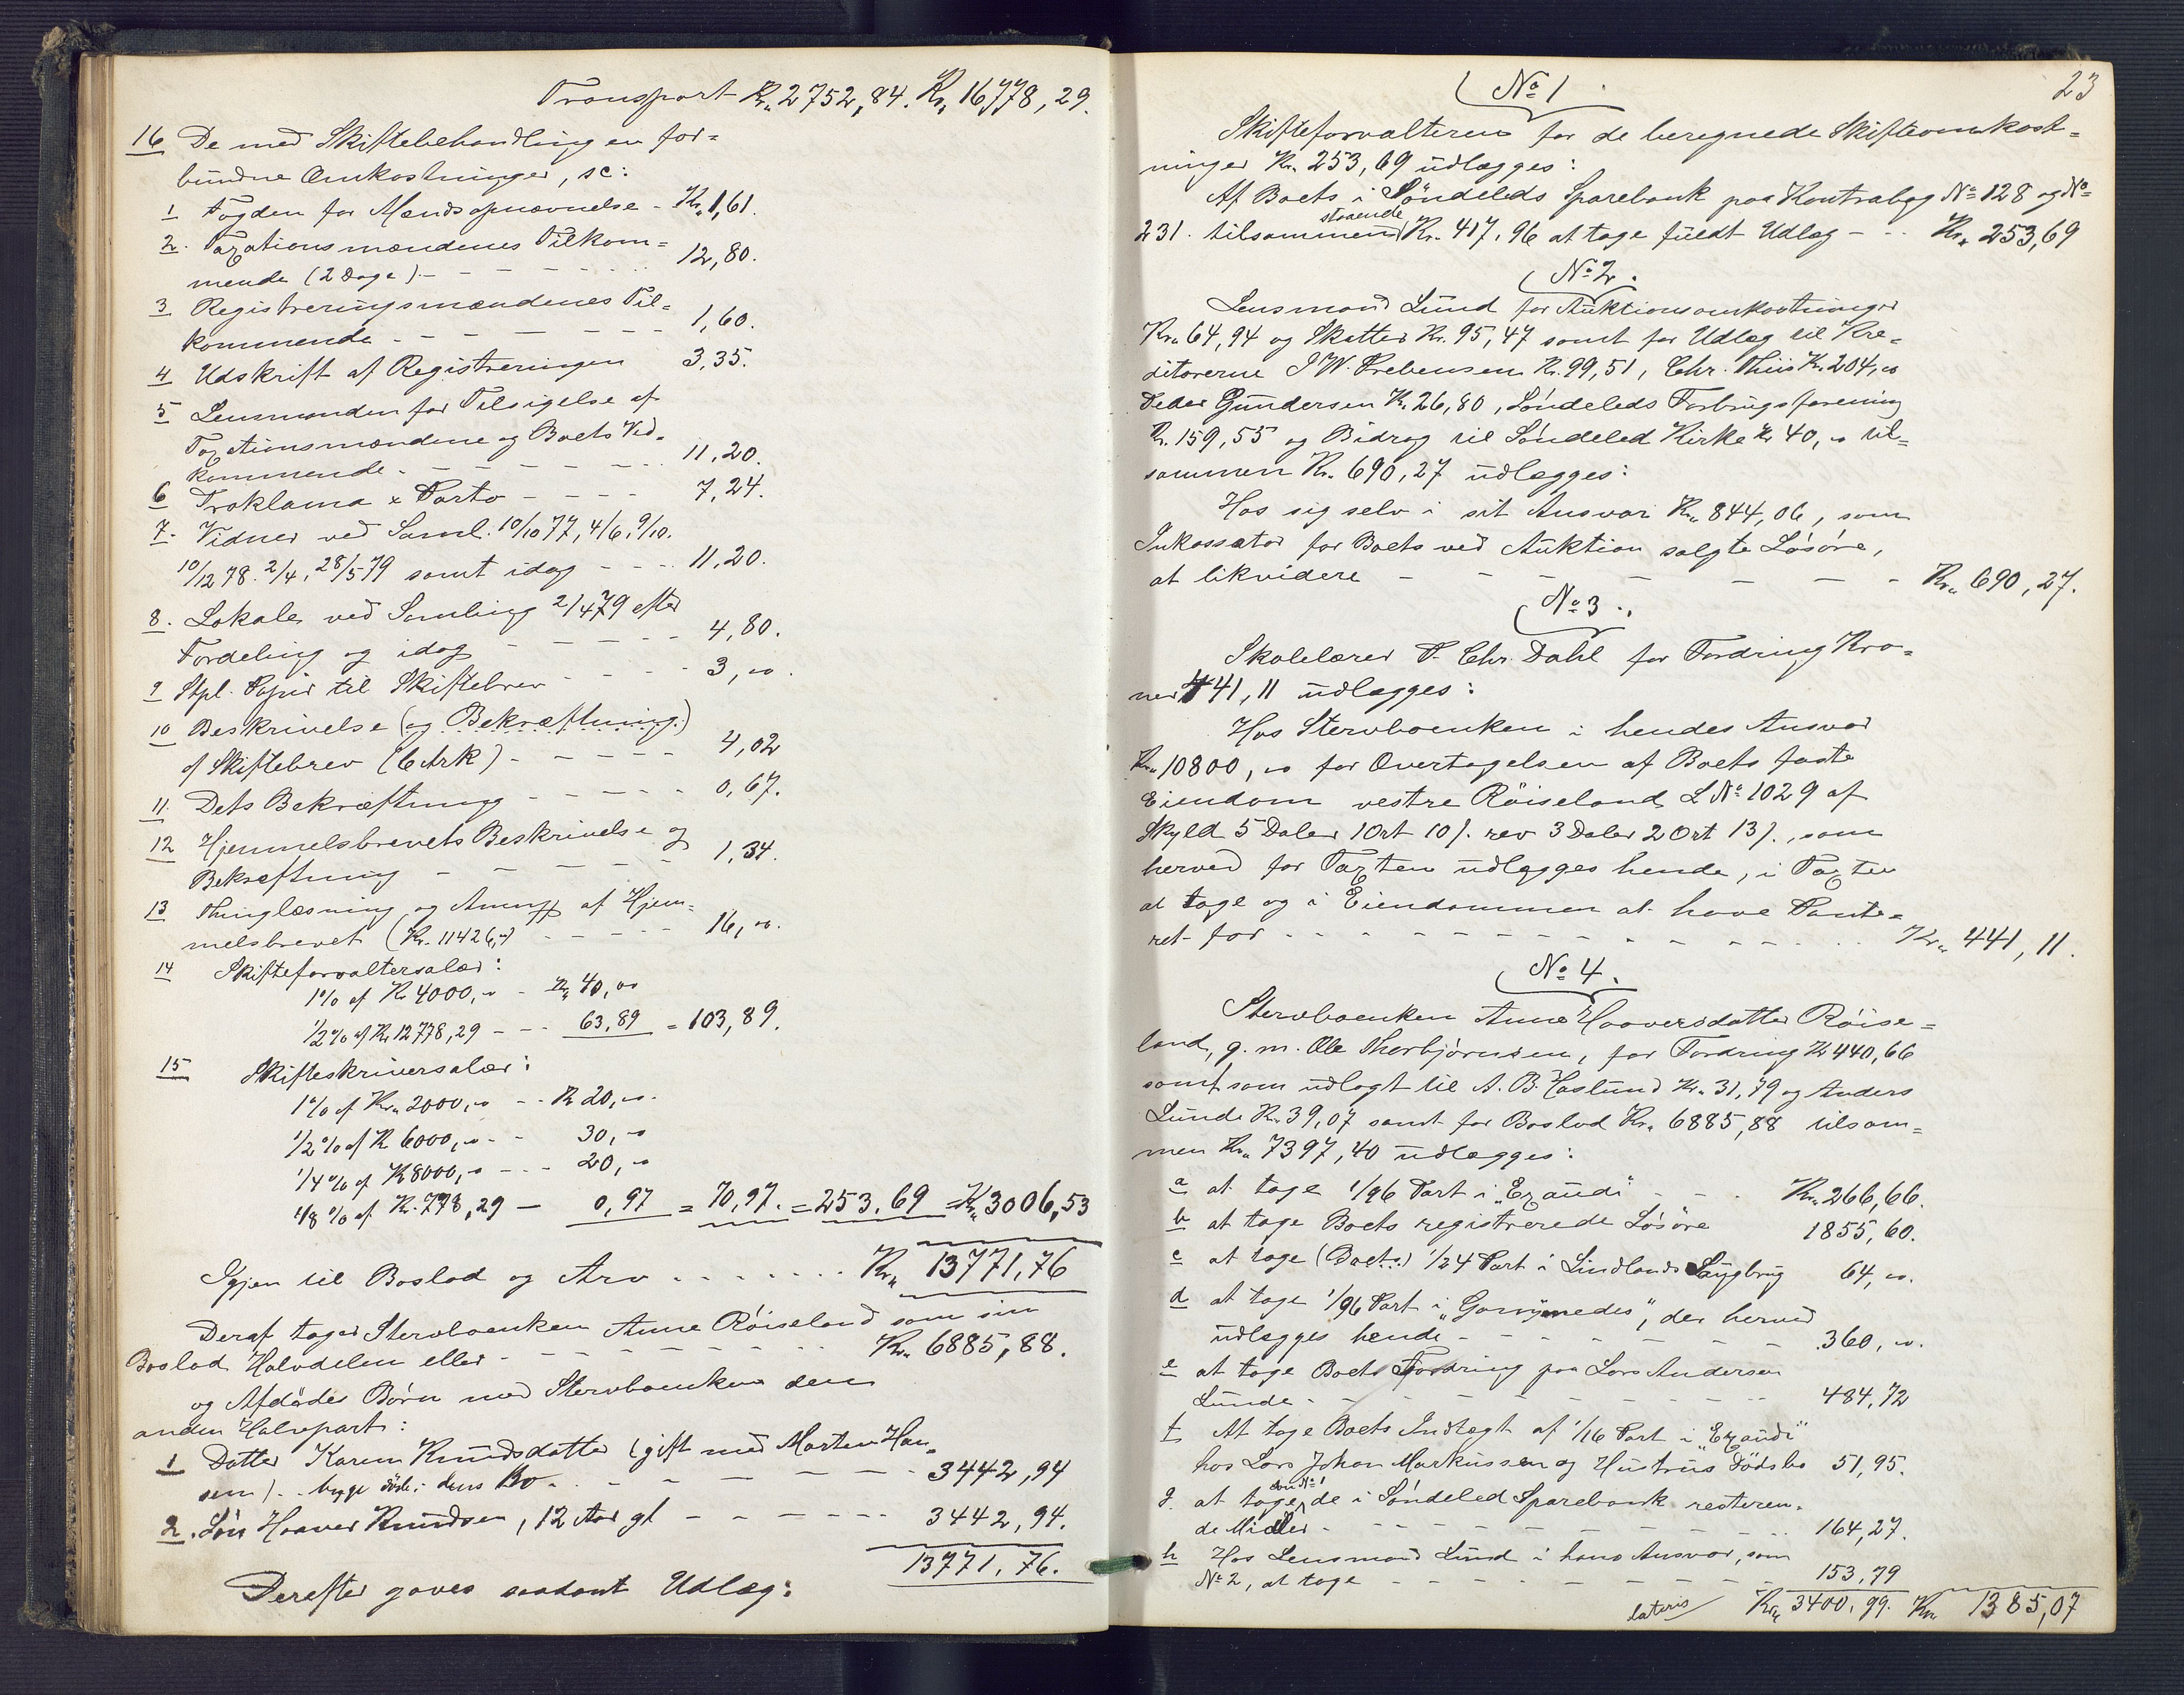 Transport Kr. 2752,84. Kr. 16778,29.
16 De med Skiftebehandlingen for=
bundne Omkostninger, sc:
1 Fogden for Mændsopnævnelse - Kr. 1,61.
2. Taxationsmændenes Tilkom=
mende (2 Dage) - - - 12,80.
3 Registreringsmændenes Til=
kommende - - - 1,60.
4 Udskrift af Registreringen 3,35.
5 Lensmanden for Tilsigelse af
Taxationsmændene og Boets Ved=
kommende - - - 11,20.
6 Proklama & Porto - - - 7,24.
7. Vidner ved Saml. 10/10 77, 4/6, 9/10.
10/12 78. 2/4, 28/5 79 samt idag - - - 11,20.
8. Lokale ved Samling 2/4 79 efter
Fordeling og idag - - - 4,80.
9 Stpl. Papir til Skiftebrev - - - 3,00.
10 Beskrivelse (og Bekræftning)
af Skiftebrev (6 Ark) - - - 4,02
11. Dets Bekræftning - - - 0,67.
12 Hjemmelsbrevets Beskrivelse og
Bekræftning - - - 1,34.
13 Thinglæsning og Anm. af Hjem=
melsbrevet (Kr. 11426,00) - - - 16,00.
14 Skifteforvaltersalær:
1% af Kr 4000,00 - Kr. 40,00
1/2% af Kr 12778,29 - - - 63,89 = 103,89.
15 Skifteskriversalær:
1% af Kr. 2000,00 - - Kr 20,00.
1/2% af Kr 6000,00 - - 30,00
1/4% af Kr 8000,00 - - - 20,00
1/8% af Kr. 778,29 - 0,97 = 70,97. = 253,69 = Kr. 3006,53
Igjen til Boslod og Arv . . . . . . . Kr. 13771,76
Deraf tager Stervboenken Anne Röiseland som sin
Boslod Halvdelen eller - - - Kr. 6885,88.
og Afdødes Börn med Stervboenken den
anden Halvpart:
1 Datter Karen Knudsdatter (gift med Morten Han=
sen) - - Bo - - - 3442,94
2. Sön Haaver Knudsen, 12 Aar gl - - - 3442,94.
13771,76.
Derefter gaves saadant Udlæg:
23
No 1.
Skifteforvalteren for de beregnede Skifteomkost=
ninger Kr. 253,69 udlægges:
Af Boets i Söndeleds Sparebank paa Kontrabog No 128 og No
231. tilsammen staaende Kr. 417,96 at tage fuldt Udlæg - - Kr. 253,69
No 2.
Lensmand Lund for Auktionsomkostninger
Kr. 64,94 og Skatter Kr. 95,47 samt for Udlæg til Kre=
ditorerne J W. Prebensen Kr. 99,51, Chr. Thiis Kr. 204,00
Peder Gundersen Kr. 26,80, Söndeleds Forbrugsforening
Kr. 159,55 og Bidrag til Söndeled Kirke Kr 40,00 til=
sammen Kr. 690,27 udlægges:
Hos sig selv i sit Ansvar Kr. 844,06, som
Inkassator for Boets ved Auktion solgte Lösöre,
at likvidere - - - Kr. 690,27.
No 3.
Skolelærer P. Chr. Dahl for Fordring Kro=
ner 441,11 udlægges:
Hos Stervboenken i hendes Ansvar
Kr. 10800,00 for Overtagelsen af Boets faste
Eiendom vestre Röiseland L No 1029 af
Skyld 5 Daler 1 Ort 10 s. rev 3 Daler 2 Ort 13 s., som
herved for Taxten udlægges hende, i Taxten
at tage og i Eiendommen at have Pante=
ret for - - - Kr. 441,11.
No 4.
Stervboenken Anne Haaversdatter Röise=
land, g. m. Ole Thorbjørnsen, for Fordring Kr 440,66
samt som udlagt til A. B. Haslund Kr. 31,79 og Anders
Lunde Kr. 39,07 samt for Boslod Kr. 6885,88 tilsam=
men Kr. 7397,40 udlægges:
a at tage 1/96 Part i "Exaudi" - - - Kr. 266,66.
b at tage Boets registrerede Lösöre 1855,60.
c at tage (Boets) 1/24 Part i Lindlands Saugbrug 64,00.
d at tage 1/96 Part i "Ganymedes", der herved
udlægges hende - - - 360,00.
e at tage Boets Fordring paa Lars Andersen
Lunde - - - 484,72
f At tage Boets Indtægt af 1/16 Part i "Exaudi"
hos Lars Johan Markussen og Hustrus Dödsbo 51,95.
g. at tage, som No 1 de i Söndeled Sparebank resteren=
de Midler - - - 164,27.
h Hos Lensmand Lund i hans Ansvar, som
No 2, at tage - - - 153,79
lateris Kr. 3400,99. Kr. 1385,07